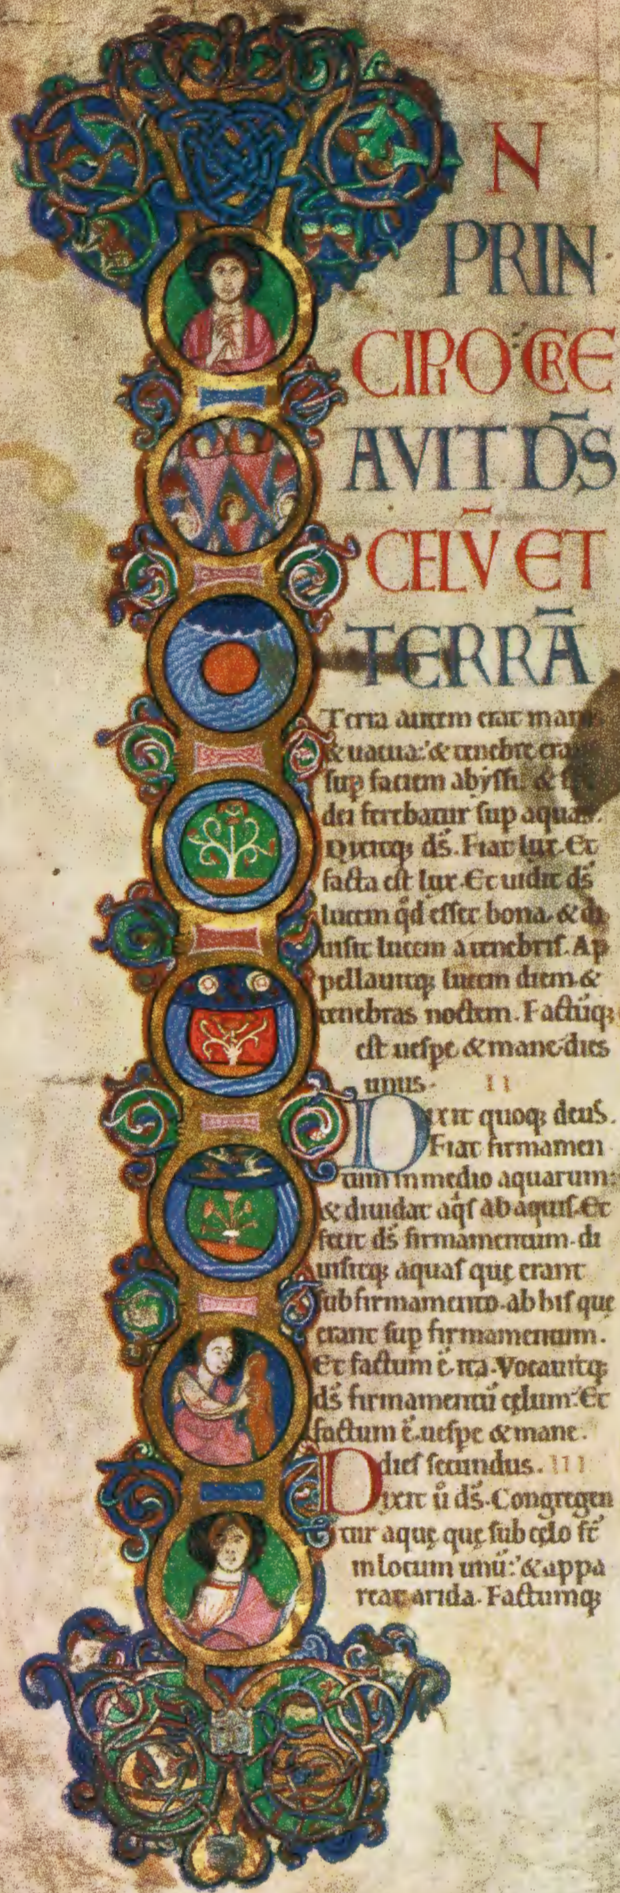 IN
PRIN
CIPIO CRE
AVIT DS̄
CELV̄ ET
TERRĀ
Terra autem erat
& uacua: & tenebre
sup faciem abyssi. &
dei ferebatur sup aquas.
Dixitq; ds̄. Fiat lux. Et
facta est lux. Et uidit ds̄
lucem qd̄ esset bona. & di
uisit lucem a tenebris. Ap
pellauitq; lucem diem &
tenebras noctem. Factūq;
est uespe & mane dies
unus. II
Dixit quoq; deus.
Fiat firmamen
tum in medio aquarum:
& diuidat aq̄s ab aquis. Et
fecit ds̄ firmamentum. di
uisitq; aquas quę erant
sub firmamento. ab his que
erant sup firmamentum.
Et factum ē ita. Vocauitq;
ds̄ firmamentū cęlum. Et
factum ē uespe & mane.
dies secundus. III
Dixit ū ds̄. Congregen
tur aquę quę sub cęlo st̄
in locum unū: & appa
reat arida. Factumq;